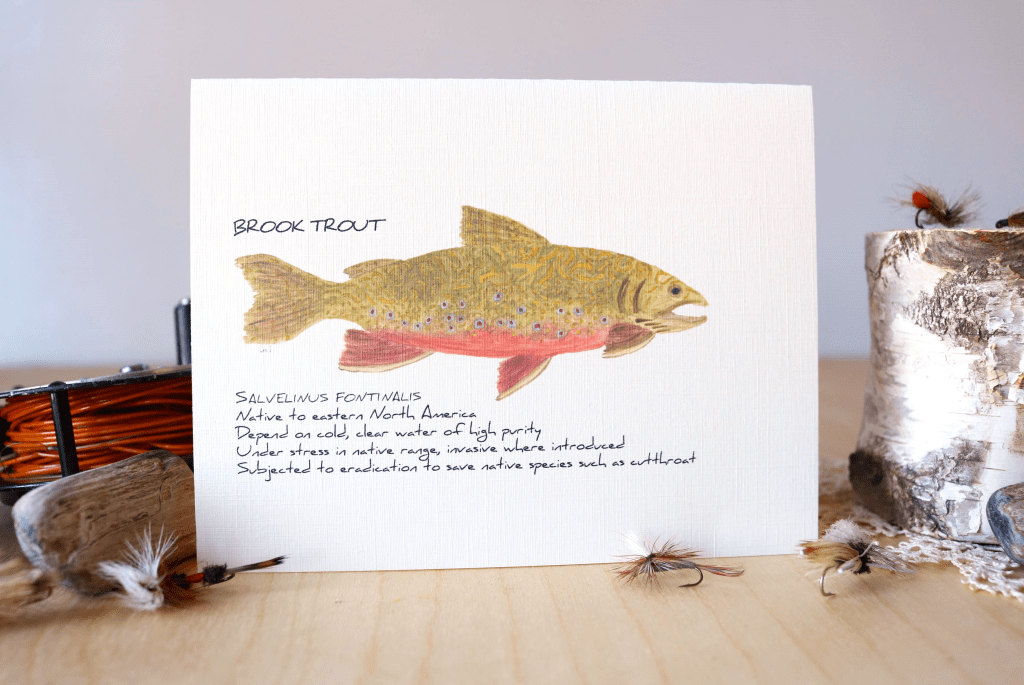 BROOK TROUT
SALVELINUS FONTINALIS
Native to eastern North America
Depend on cold, clear water of high purity
Under stress in native range, invasive where introduced
Subjected to eradication to save native species such as cutthroat